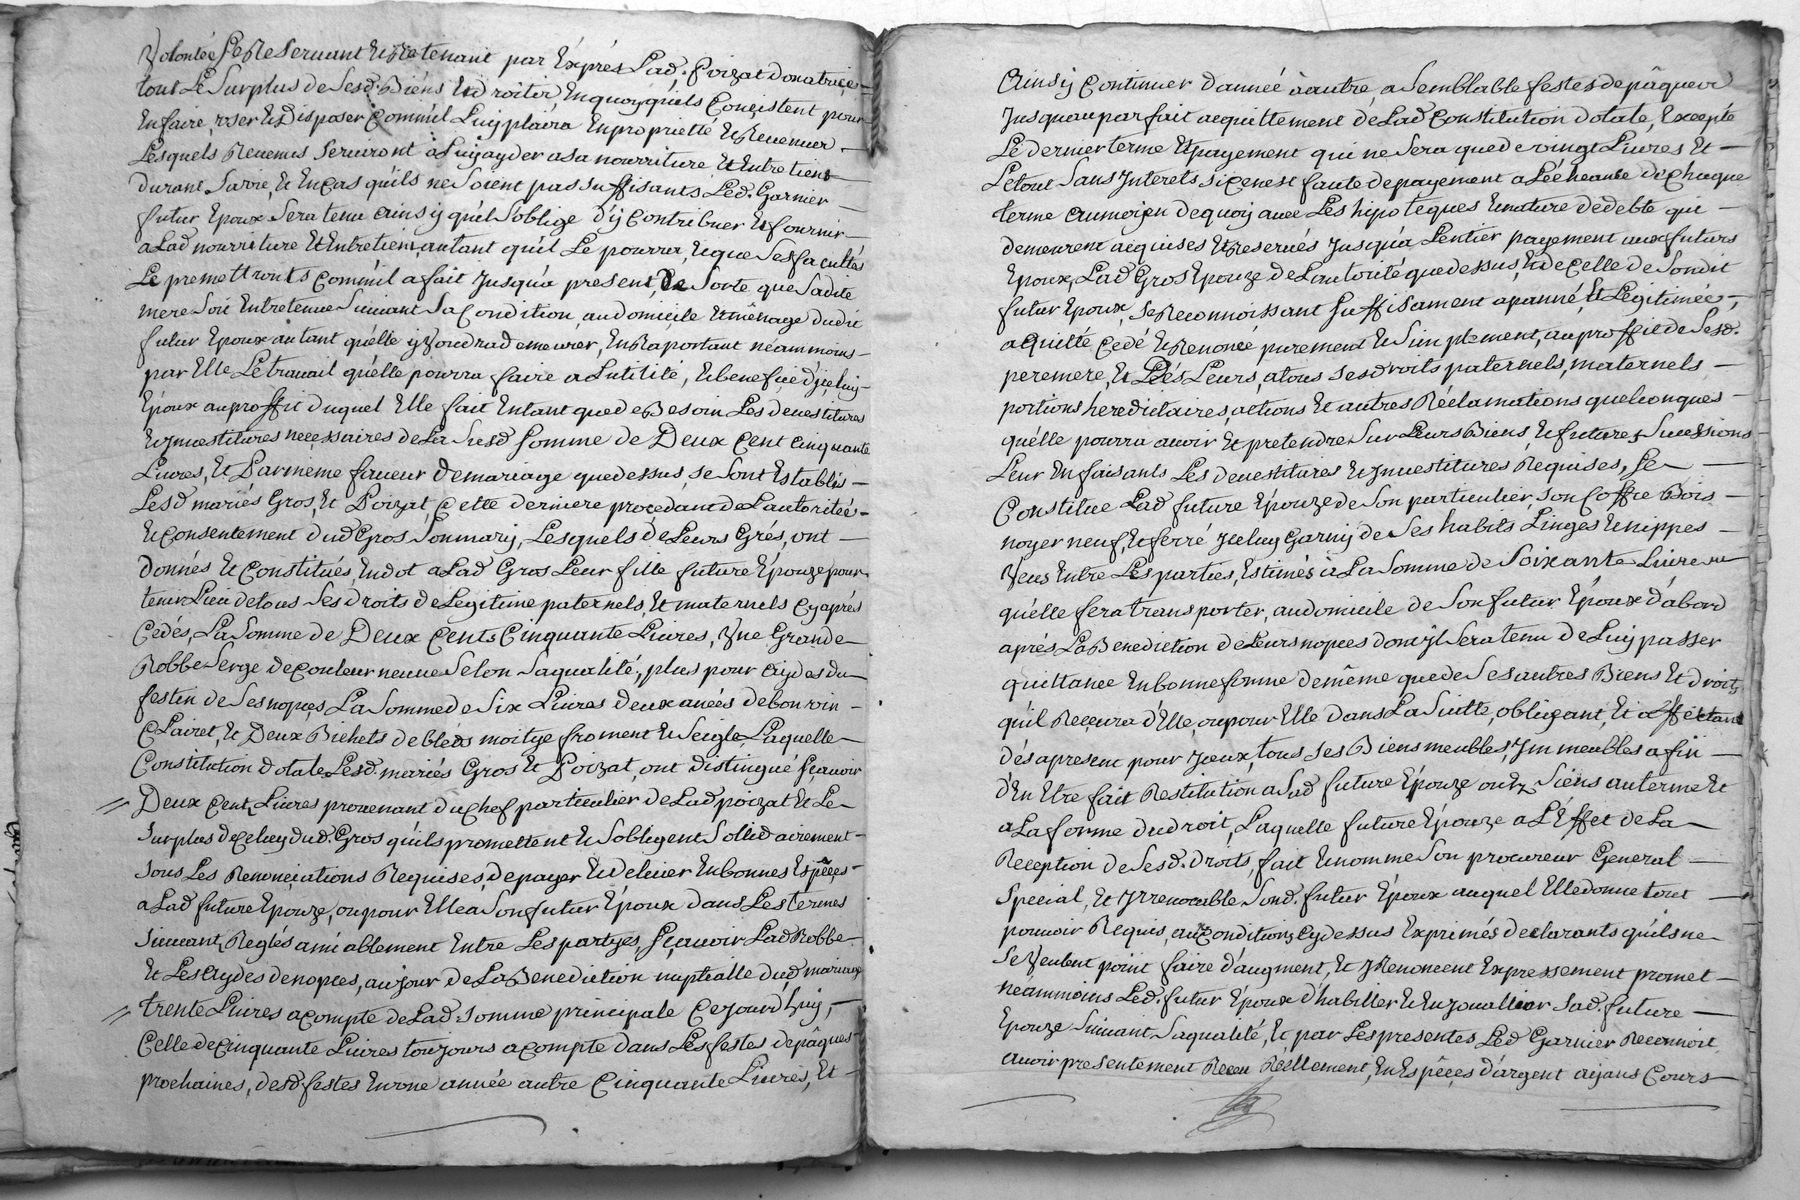 Volontée Se Reservant Et Retenant par Exprés Lad. Poizat donatrice
tout Le Surplus de Sesd. Biéns Et droitis En quoy quils Conçistent pour
En faire, user Et Disposer Comm'il Luy plaira En proprietté Et Revenuer
Lesquels Revenus Serviront a Luy ayder a sa nourriture Et Entretiens
durant Savie, Et En Cas qu'ils ne Soient pas Suffisants Led. Garnier
futur Epoux Sera tenu Ainsy qu'il S'oblige d'y Contribuer Et fournir
a Lad nourriture Et Entretiens, autant qu'il Le pourra, Et que Ses facultés
Le premettronts Comm'il a fait Jusqu'a present, De Sorte que Sadite
mere Soit Entretenue Suivant Sa Condition, au domicile Et mênage dudit
futur Epoux autant qu'elle y Voudra demeurer, En Raportant néammoins
par Elle Le travail qu'elle pourra faire a Lutilité, Et benefice d'jceluy
Epoux au proffit duquel Elle fait Entant que de Besoin Les devestitures
Et Jnvestitures necessaires de La Susd Somme de Deux Cent Cinquante
Livres, Et Parmême faveur de mariage que dessus, se Sont Establis
Lesd mariés Gros, Et Poizat, Cette derniere procedant de L'autoriteé
Et Consentement dud Gros Son mary, Lesquels de Leurs Grés, ont
donnés Et Constitués, En dot a Lad Gros Leur fille future Epouze pour
tenir Lieu de tous Ses droits de Legitime paternels, Et maternels Cy aprés
Cedés, La Somme de Deux Cents Cinquante Livres, Vne Grande
Robbe Serge de Couleur neuve Selon Sa qualité, plus pour Aydes du
festin de Ses nopces La Somme de Six Livres deux aneés de bon vin
Clairet, Et Deux Bichets de bleds moitye froment Et Seigle, Laquelle
Constitution dotale Lesd. mariés Gros Et Poizat, ont distingué Sçavoir
Deux Cent Livres provenant du Chef particulier de Lad poizat Et Le
Surplus de Celuy dud. Gros qu'ils promettent Et S'obligent Sollidairement
Sous Les Renonciations Requises, de payer Et delivrer En bonnes Espêces
a Lad future Epouze, ou pour Elle a Son futur Epoux dans Les termes
Suivant, Reglés amiablement Entre Les partyes, Sçavoir Lad Robbe
Et Les Aydes de nopces, au jour de La Benediction nuptialle dud mariage
trente Livres a Compte de Lad. Somme principale Cejourd'huy,
Celle de Cinquante Livres toujours a Compte dans Les festes de pâques
prochaines, desd festes En vne année autre Cinquante Livres, Et
Ainsy Continuer d'année à autre, a Semblable festes de pâques
Jusqu'au parfait acquittement de Lad Constitution dotale, Excepté
Le dernier terme Et payement qui ne Sera que de vingt Livres Et
Le tout Sans Jnterets Si Ce n'est faute de payement a L'écheance de Chaque
terme Au moyen de quoy avec Les hipoteques Et nature de debte qui
demeurent acquises Et Reservés Jusqu'a L'entier payement aux futurs
Epoux, Lad Gros Epouze de L'autorité que dessus, Et de Celle de Sondit
futur Epoux, Se Reconnoissant Suffisament apanné, Et Legitimée,
a quitté Cedé Et Renoncé purement Et Simplement, au proffit de Sesd.
pere mere, Et Des Leurs, a tous Ses droits paternels, maternels
portions heredictaires, actions Et autres Réclamations quelconques
qu'elle pourra avoir Et pretendre Sur Leurs Biens Et futures Sucessions
Leur En faisants Les devestitures Et Jnvestitures Requises, Se
Constitue Lad future Epouze de Son particulier, Son Coffre Bois
noyer neuf, Et ferré Jceluy Garny de Ses habits Linges Et nippes
Veus Entre Les parties, Estimés a La Somme de Soixante Livres
qu'elle fera transporter, au domicile de Son futur Epoux d'abord
aprés La Benediction de Leurs nopces dont jl Sera tenu de Luy passer
quittance En bonne forme de même que de Ses autres Biens Et droits
qu'il Recevra d'Elle, ou pour Elle dans La Suitte, obligeant, Et affectant
dés apresent pour Jceux, tous Ses Biens meubles, Jmmeubles afin
d'En Etre fait Restitution a Sad future Epouze ou Es Siéns au terme Et
a La forme du droit, Laquelle future Epouze a L'Effet de La
Reception de Sesd. droits, fait Et nomme Son procureur General
Special, Et Jrrevocable Sond. futur Epoux auquel Elle donne tout
pouvoir Requis, aux Conditions Cy dessus Exprimés declarants qu'ils ne
Se Veulent point faire d'augment, Et y Renoncent Expressement promet
néammoins Led. futur Epoux d'habiller Et Enjoualler Sad. future
Epouze Suivant Sa qualité, Et par Les presentes Led Garnier Reconnoit
avoir presentement Receu Réellement, En Espêces d'argent ayans Cours